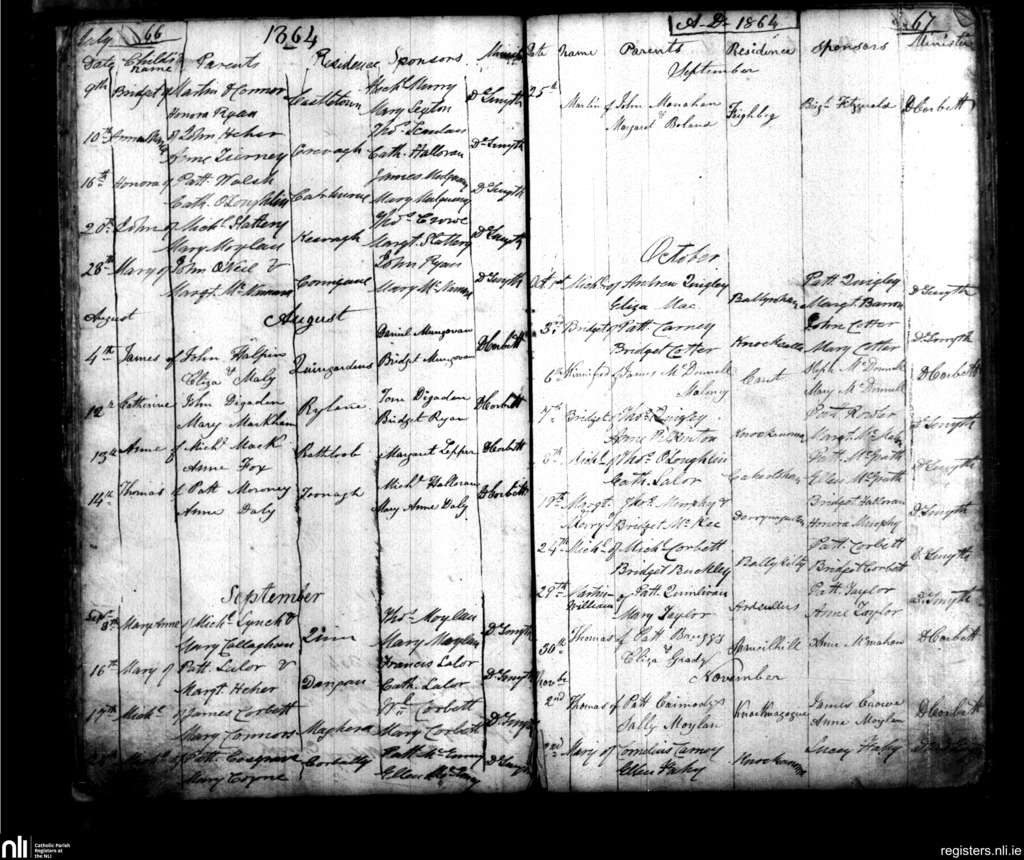 July 66 1864
Date Child's name Parents Residence Sponsors
9th Bridget of Martin O'Connor Castletown Mich. Merry Dr Smyth
Honora Ryan Mary Sexton
10th Anna Maria of John Heher Thos. Scanlan Dr Smyth
Anne Tierney Cath. Halloran
16th Honora of Patt. Walsh James Mulqueeny Dr Smyth
Cath. O'Loughlin Mary Mulqueeny
20th John of Mich. Slattery Keevagh Thos. Crowe Dr Smyth
Mary Moylan Margt. Slattery
28th Mary of John O'Neil & John Ryan Dr Smyth
Margt. McNamara Mary McNamara
August August
4th James of John Halpin Quingardens Daniel Mungovan D Corbett
Eliza Maly Bridget Mungovan
12th Catherine John Digadan Rylane Tom Digadan D Corbett
Mary Markham Bridget Ryan
13th Anne of Mich. Mack Rathloob Margaret Pepper D Corbett
Anne Fox
14th Thomas of Patt Moroney Toonagh Mich. Halloran D Corbett
Anne Daly Mary Anne Daly
September
8th Mary Anne of Mich. Lynch & Quin Thos. Moylan Dr Smyth
Mary Callaghan Mary Moylan
16th Mary of Patt. Lalor & Dangan Francis Lalor Dr Smyth
Margt. Heher Cath. Lalor
17th Mich. of James Corbett Maghera Wm. Corbett Dr Smyth
Mary Connors Mary Corbett
Patt. Cosgrave Dr Smyth
Mary Coyne
A.D. 1864 67
Date Name Parents Residence Sponsors Minister
September
25th Martin of John Monahan Feighbeg Brigt. Fitzgerald D Corbett
Margaret Boland
October
Oct 1st Mich. of Andrew Quigley Patt. Quigley Dr Smyth
Eliza Mac. Margt. Barron
3rd Bridget of Patt Carney John Cotter Dr Smyth
Bridget Cotter Mary Cotter
6th Winnifred of James McDonnell Creet McDonnell D Corbett
Malony Mary McDonnell
7th Bridget of Thos. Quigley Dr Smyth
Anne Pilkenton Knockanoura
8th Mich. of Thos. O'Loughlin Patt. McGrath Dr Smyth
Cath. Lalor Ellen McGrath
19th Margt. Thos. Murphy & Bridget Halloran Dr Smyth
Mary Bridget McKee Honora Murphy
24th Mich. of Mich. Corbett Ballykilty Patt. Corbett Dr Smyth
Bridget Buckley Bridget Corbett
29th Martin of Patt. Quinlivan Patt. Taylor Dr Smyth
William Mary Taylor Anne Taylor
30th Thomas of Patt Briggs Spancilhill Anne McMahon D Corbett
Eliza Grady
Novbr November
2nd Thomas of Patt Knocknagogue James Crowe D Corbett
Sally Moylan Anne Moylan
Mary of Cornelius Carney Knockanoura Lucey Fahy
Ellen Fahy
nli Catholic Parish Registers at the NLI
registers.nli.ie